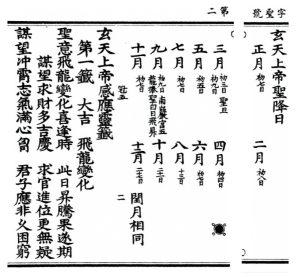 字聖號
第二
玄天上帝聖降日
正月 初七日
二月 初八日
三月 初三日聖旦 初九日
四月 初四日
五月 初五日
六月 初七日
七月 初七日
八月 十三日
九月 初九日
十月 二十日
十一月 初七日
十二月 二十七日
閏月相同
玄天上帝感應靈籤
第一籤 大吉 飛龍變化
聖意飛龍變化喜逢時 此日昇騰果遂期
謀望求財多吉慶 求官進位更無疑
謀望冲霄志氣滿心胷 君子應非久困窮
二